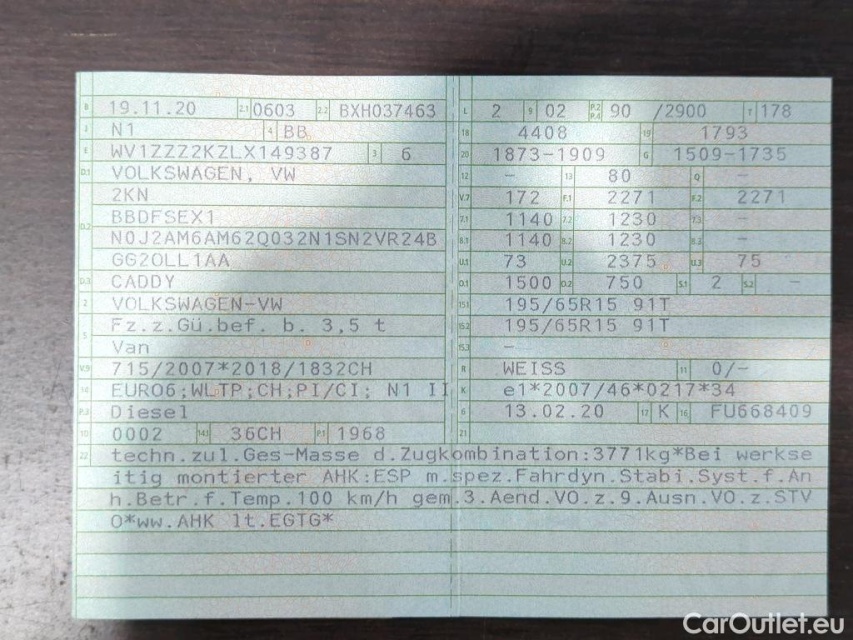 B 19.11.20 2.1 0603 2.2 BXH037463 L 2 9 02 P.2 P.4 90 /2900 T 178
J N1 4 BB 18 4408 19 1793
E WV1ZZZ2KZLX149387 3 6 20 1873-1909 G 1509-1735
D.1 VOLKSWAGEN, VW 12 - 13 80 Q -
2KN V.7 172 F.1 2271 F.2 2271
D.2 BBDFSEX1 7.1 1140 7.2 1230 7.3 -
N0J2AM6AM62Q032N1SN2VR24B 8.1 1140 8.2 1230 8.3 -
GG2OLL1AA U.1 73 U.2 2375 U.3 75
D.3 CADDY O.1 1500 O.2 750 S.1 2 S.2 -
2 VOLKSWAGEN-VW 15.1 195/65R15 91T
5 Fz.z.Gü.bef. b. 3,5 t 15.2 195/65R15 91T
Van 15.3 -
V.9 715/2007*2018/1832CH R WEISS 11 0/-
14 EURO6;WLTP;CH;PI/CI; N1 II K e1*2007/46*0217*34
P.3 Diesel 6 13.02.20 17 K 16 FU668409
10 0002 14.1 36CH P.1 1968 21
22 techn.zul.Ges-Masse d.Zugkombination:3771kg*Bei werkse
itig montierter AHK:ESP m.spez.Fahrdyn.Stabi.Syst.f.An
h.Betr.f.Temp.100 km/h gem.3.Aend.VO.z.9.Ausn.VO.z.STV
O*ww.AHK lt.EGTG*
CarOutlet.eu